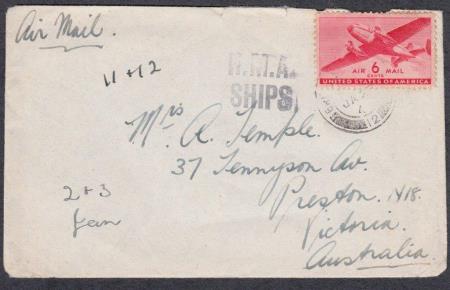 Air Mail.
11+12
R.M.A.
SHIPS
AIR 6 MAIL
CENTS
UNITED STATES OF AMERICA
JA
12
Mrs A. Temple.
37 Tennyson Av.
Preston. N18.
Victoria.
Australia.
2+3